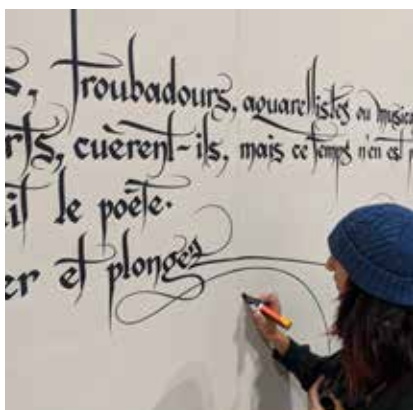 s, troubadours, aquarellistes ou music
rts, cuèrent-ils, mais ce temps n'en est
it le poète.
er et plonges